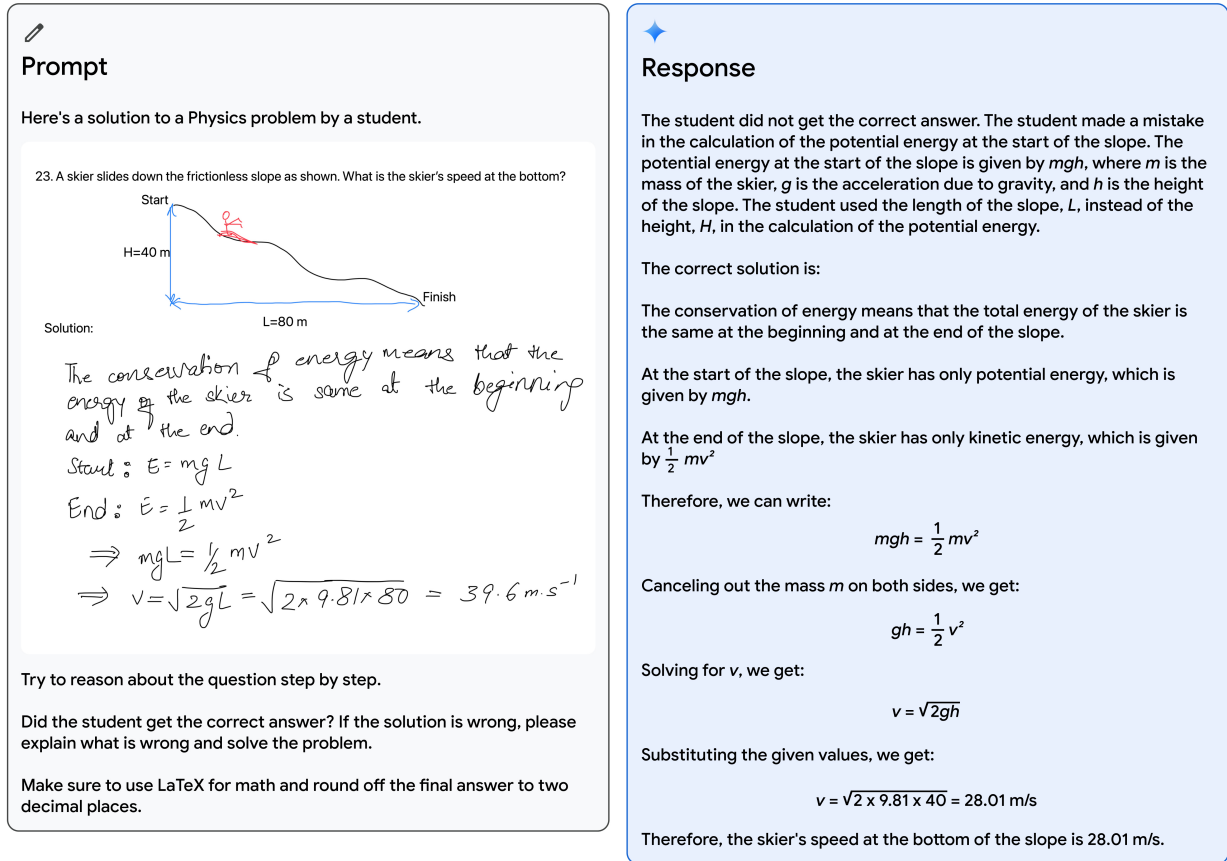 Prompt
Here's a solution to a Physics problem by a student.
23. A skier slides down the frictionless slope as shown. What is the skier's speed at the bottom?
Start
H=40 m
Finish
L=80 m
Solution:
The conservation of energy means that the
energy of the skier is same at the beginning
and at the end.
Start : E = mg L
End : E = 1/2 mv²
⇒ mgL = 1/2 mv²
⇒ v = √2gL = √2 × 9.81 × 80 = 39.6 m.s⁻¹
Try to reason about the question step by step.
Did the student get the correct answer? If the solution is wrong, please
explain what is wrong and solve the problem.
Make sure to use LaTeX for math and round off the final answer to two
decimal places.
Response
The student did not get the correct answer. The student made a mistake
in the calculation of the potential energy at the start of the slope. The
potential energy at the start of the slope is given by mgh, where m is the
mass of the skier, g is the acceleration due to gravity, and h is the height
of the slope. The student used the length of the slope, L, instead of the
height, H, in the calculation of the potential energy.
The correct solution is:
The conservation of energy means that the total energy of the skier is
the same at the beginning and at the end of the slope.
At the start of the slope, the skier has only potential energy, which is
given by mgh.
At the end of the slope, the skier has only kinetic energy, which is given
by 1/2 mv²
Therefore, we can write:
mgh = 1/2 mv²
Canceling out the mass m on both sides, we get:
gh = 1/2 v²
Solving for v, we get:
v = √2gh
Substituting the given values, we get:
v = √2 x 9.81 x 40 = 28.01 m/s
Therefore, the skier's speed at the bottom of the slope is 28.01 m/s.